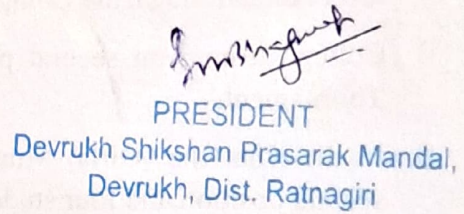 PRESIDENT
Devrukh Shikshan Prasarak Mandal,
Devrukh, Dist. Ratnagiri